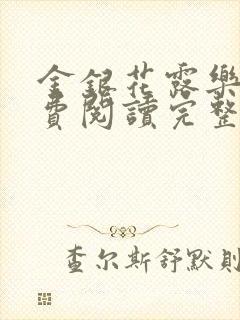 金銀花露樂
費閱讀完整
查尔斯舒默則